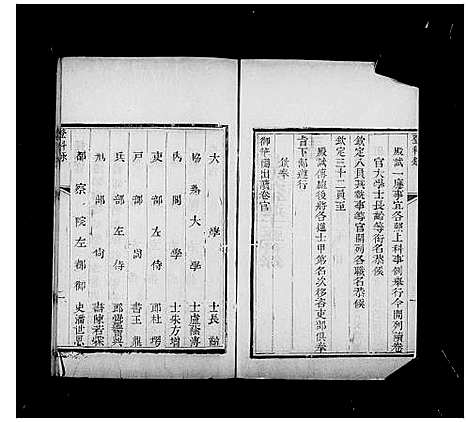 登科錄
殿試一應事宜各照上科事例舉行今開列讀卷
官大學士長齡等銜名恭候
欽定八員其執事等官開列各職名恭候
欽定三十二員至
殿試傳臚後將各進士甲第名次移咨吏部俱奉
旨下部遵行
欽奉
御筆圈出讀卷官
大學士長齡
協辦大學士盧蔭溥
內閣學士朱方增
吏部左侍郎杜堮
戶部尚書王鼎
兵部左侍郎
刑部尚書陳若霖
都察院左都御史潘世恩
登科錄